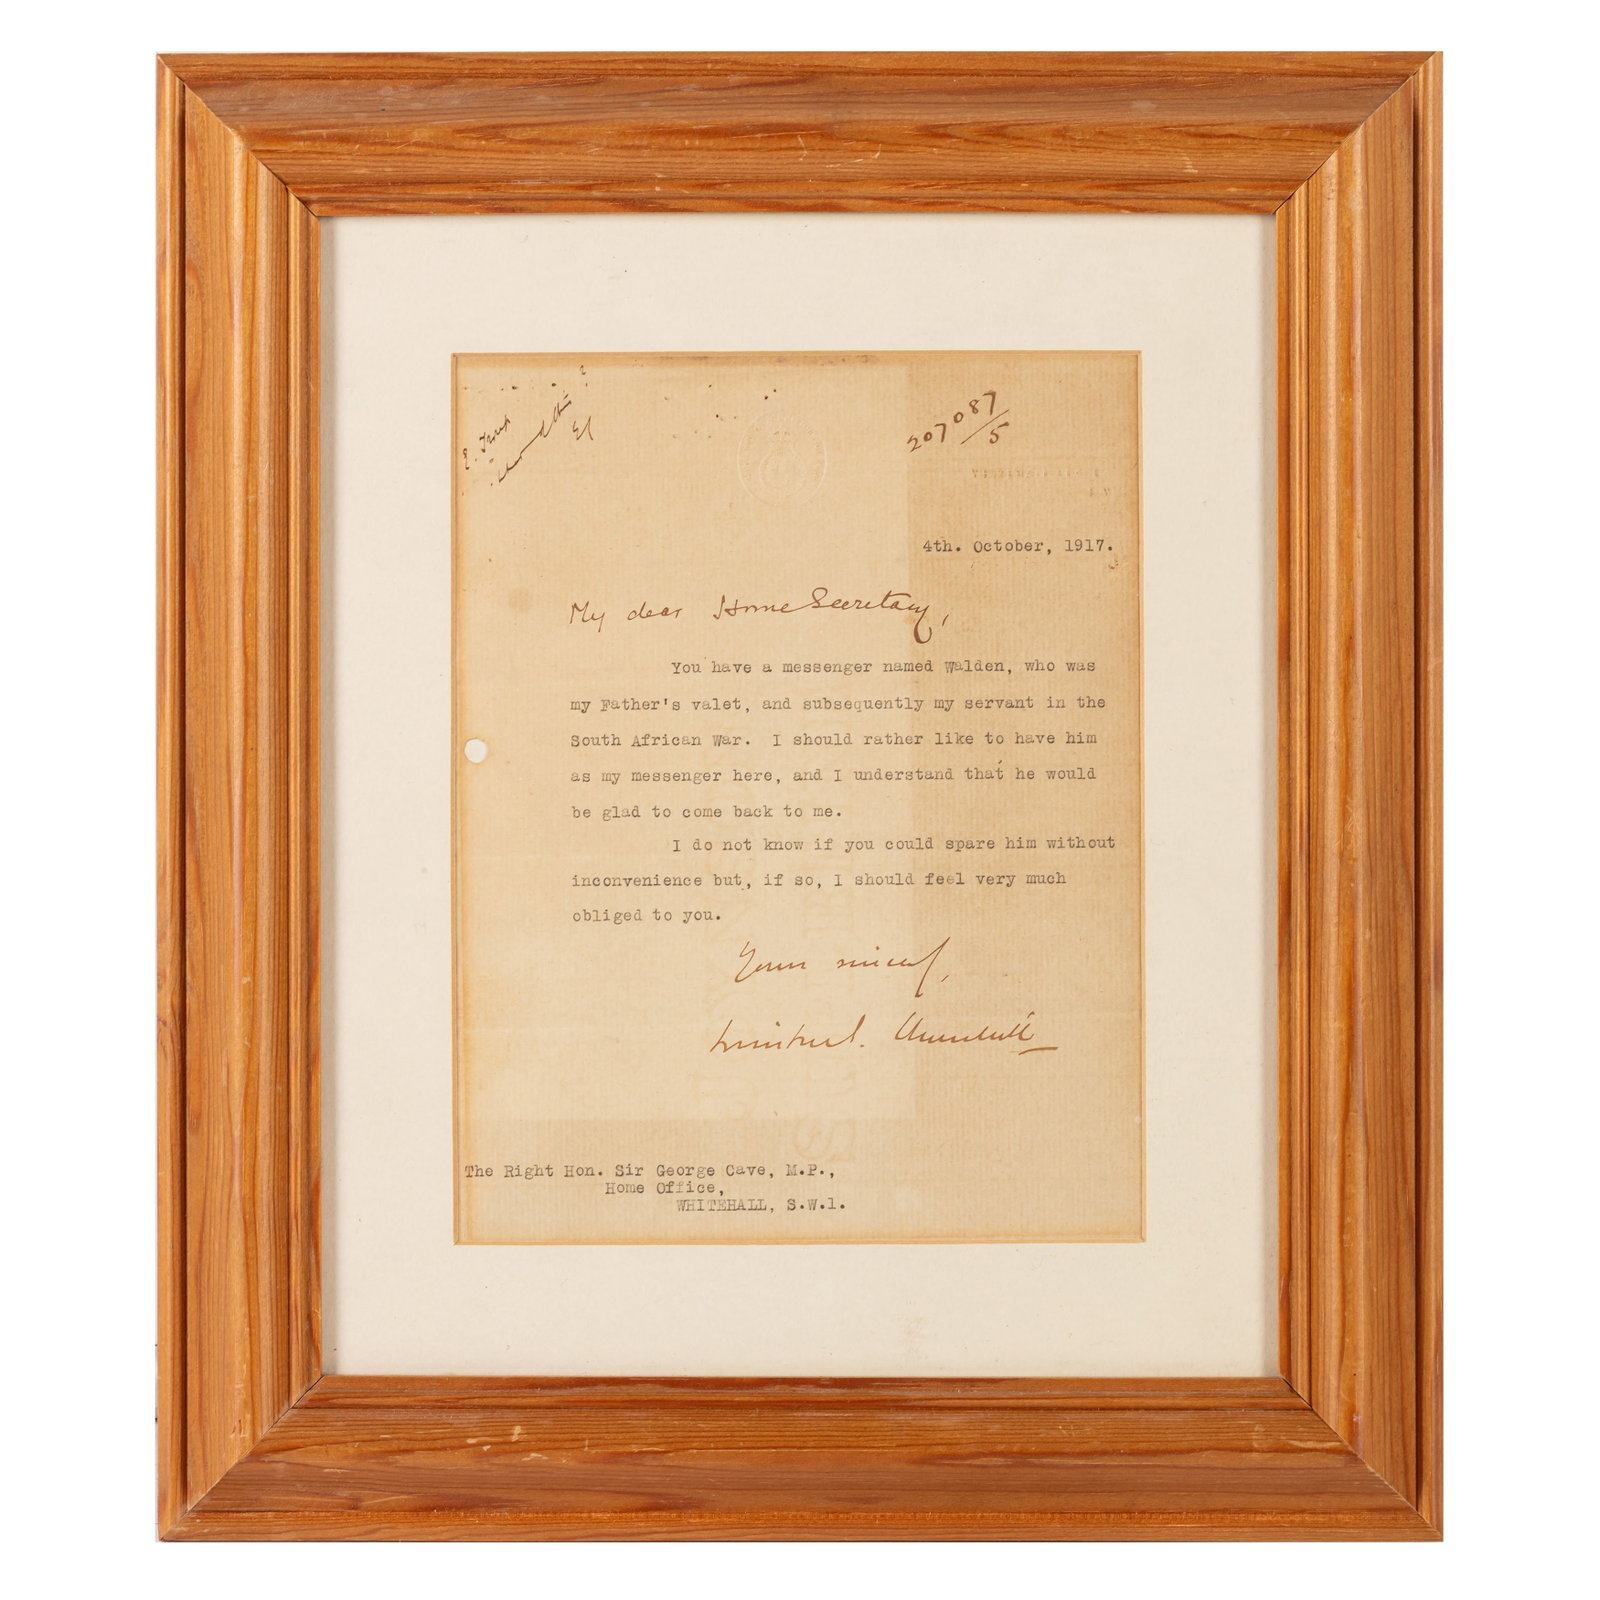 E. Troup
207087/5
4th. October, 1917.
My dear Home Secretary,
You have a messenger named Walden, who was
my Father's valet, and subsequently my servant in the
South African War. I should rather like to have him
as my messenger here, and I understand that he would
be glad to come back to me.
I do not know if you could spare him without
inconvenience but, if so, I should feel very much
obliged to you.
Yours sincerely,
Winston S. Churchill
The Right Hon. Sir George Cave, M.P.,
Home Office,
WHITEHALL, S.W.1.